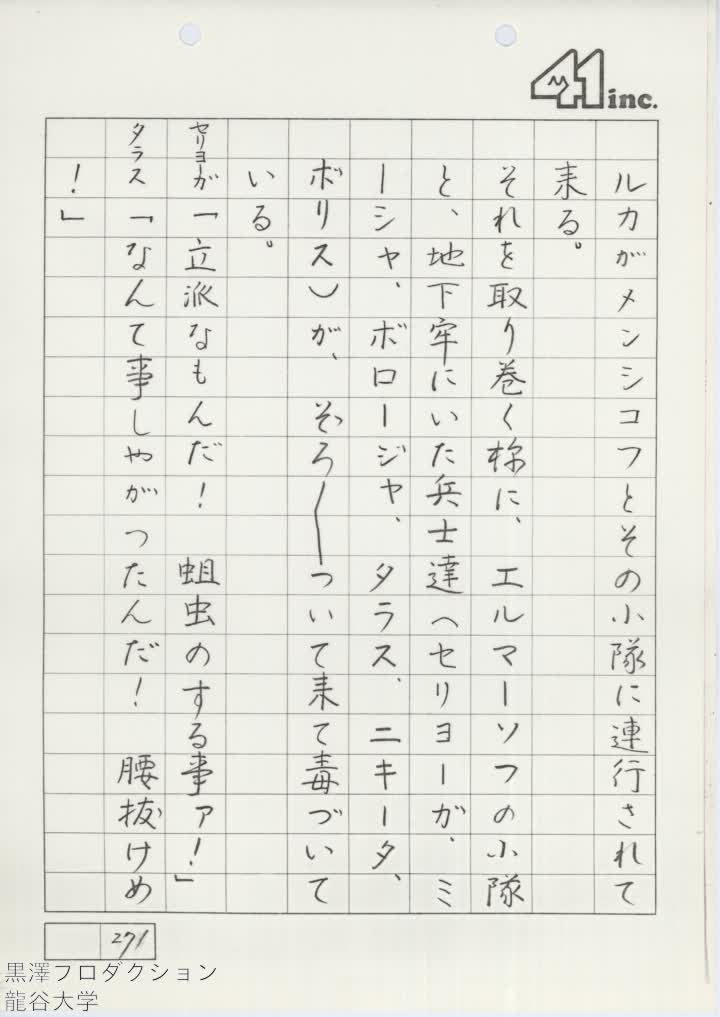 41 inc.
ルカがメンシコフとその小隊に連行されて
来る。
それを取り巻く様に、エルマーソフの小隊
と、地下牢にいた兵士達（セリョーガ、ミ
ーシャ、ボロージャ、タラス、ニキータ、
ボリス）が、ぞろ〱ついて来て毒づいて
いる。
セリョーガ「立派なもんだ！　蛆虫のする事ァ！」
タラス「なんて事しやがったんだ！　腰抜けめ
！」
271
黒澤プロダクション
龍谷大学